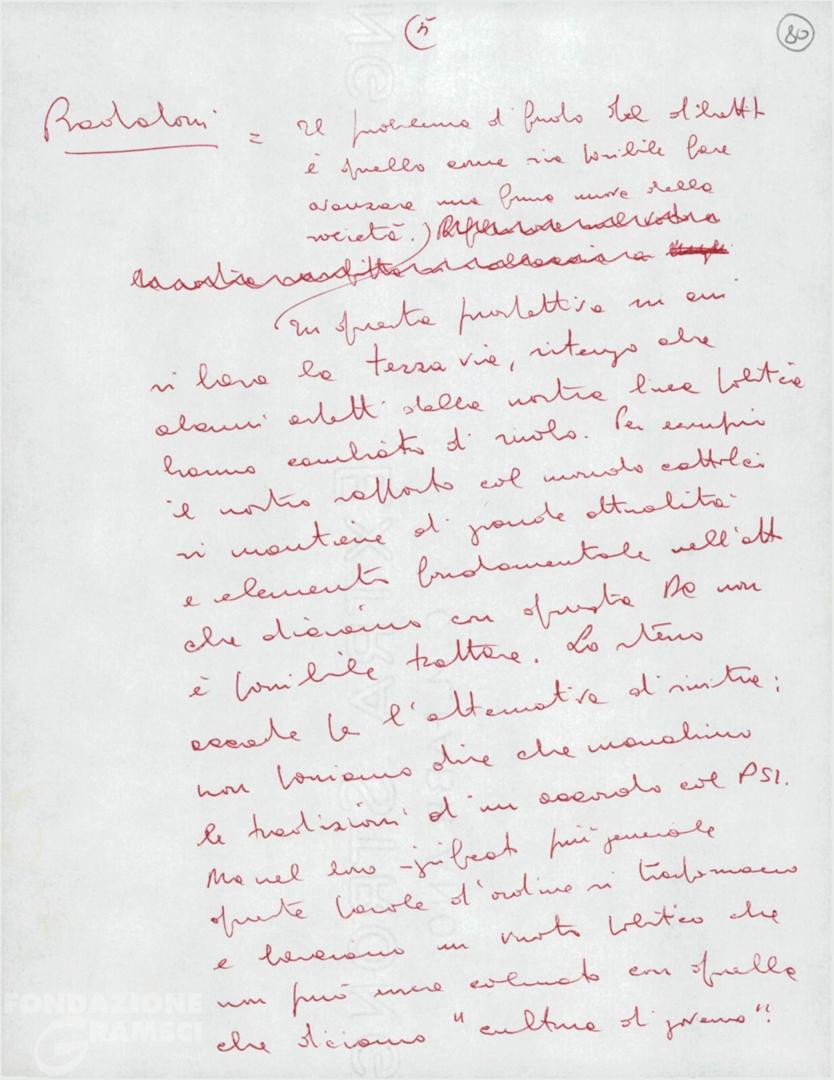 5
80
Badaloni = Il problema di fondo del dibatt.
è quello come sia possibile fare
avanzare una forma nuova della
società.
In questa prospettiva in cui
si pone la terza via, ritengo che
alcuni aspetti della nostra linea politica
hanno cambiato di ruolo. Per esempio
il nostro rapporto col mondo cattolico
si mantiene di grande attualità
e elemento fondamentale nell'att
che diciamo con questa DC non
è possibile trattare. Lo stesso
accade per l'alternativa di sinistra;
non possiamo dire che manchino
le tradizioni di un accordo col PSI.
Ma nel loro signficato più generale
queste parole d'ordine si trasformano
e lasciano un vuoto politico che
non può essere colmato con quella
che diciamo "cultura di governo".
FONDAZIONE
GRAMSCI
EXTRA STRONG